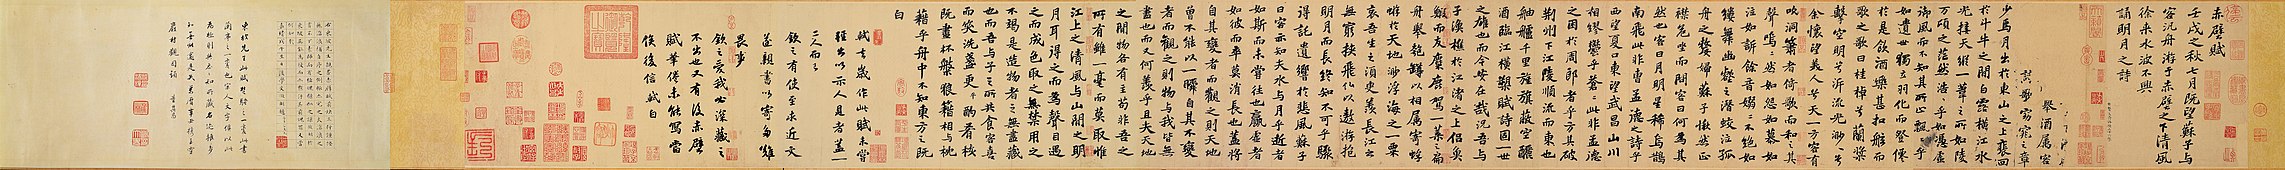 赤壁賦
壬戌之秋七月既望蘇子與
客汎舟游于赤壁之下清風
徐来水波不興
舉酒屬客
誦明月之詩
歌窈窕之章
少焉月出於東山之上裵回
於斗牛之間白露橫江水
光接天縱一葦之所如陵
萬頃之茫然浩浩乎如馮虛
御風而不知其所止飄飄乎
如遺世獨立羽化而登僊
於是飲酒樂甚扣舷而
歌之歌曰桂棹兮蘭槳
擊空明兮泝流光渺渺兮
余懷望美人兮天一方客有
吹洞簫者倚歌而和之其
聲嗚嗚然如怨如慕如
泣如訴餘音嫋嫋不絶如
縷舞幽壑之潛蛟泣孤
舟之嫠婦蘇子愀然正
襟危坐而問客曰何為其
然也客曰月明星稀烏鵲
南飛此非曹孟德之詩乎
西望夏口東望武昌山川
相繆鬱乎蒼蒼此非孟德
之困於周郎者乎方其破
荊州下江陵順流而東也
舳艫千里旌旗蔽空釃
酒臨江橫槊賦詩固一世
之雄也而今安在哉況吾與
子漁樵於江渚之上侶魚
鰕而友麋鹿駕一葉之扁
舟舉匏罇以相屬寄蜉
蝣於天地渺浮海之一粟
哀吾生之須臾羨長江之
無窮挾飛仙以遨游抱
明月而長終知不可乎驟
得託遺響於悲風蘇子
曰客亦知夫水與月乎逝者
如斯而未嘗往也贏虛者
如彼而卒莫消長也蓋將
自其變者而觀之則天地
曾不能以一瞬自其不變
者而觀之則物與我皆無
盡也而又何羨乎且夫天地
之間物各有主苟非吾之
所有雖一毫而莫取惟
江上之清風與山間之明
月耳得之而為聲目遇
之而成色取之無禁用之
不竭是造物者之無盡藏
也而吾與子之所共食客喜
而笑洗盞更酌肴核
既盡杯盤狼藉相與枕
藉乎舟中不知東方之既
白
軾去歲作此賦未嘗
輕出以示人見者蓋一
二人而已
欽之有使至求近文
遂親書以寄多難
畏事
欽之愛我必深藏之
不出也又有後赤壁
賦筆倦未能寫當
俟後信軾白
東坡先生此賦楚騷之一變此書
蘭亭之一變也宋人文字俱以此
為極則